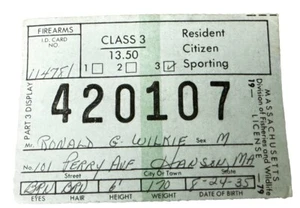 FIREARMS
I.D. CARD NO.
114781
CLASS 3
13.50
1 2 3
Resident
Citizen
Sporting
PART 3 DISPLAY
420107
Mr. RONALD G. WILKIE Sex M
No. 101 TERRY AVE HANSON, MA
Street City Or Town State
BRN BRN 6' 170 8-24-35
EYES HAIR HEIGHT WEIGHT DATE OF BIRTH
MASSACHUSETTS
Division of Fisheries and Wildlife
LICENSE
19 79